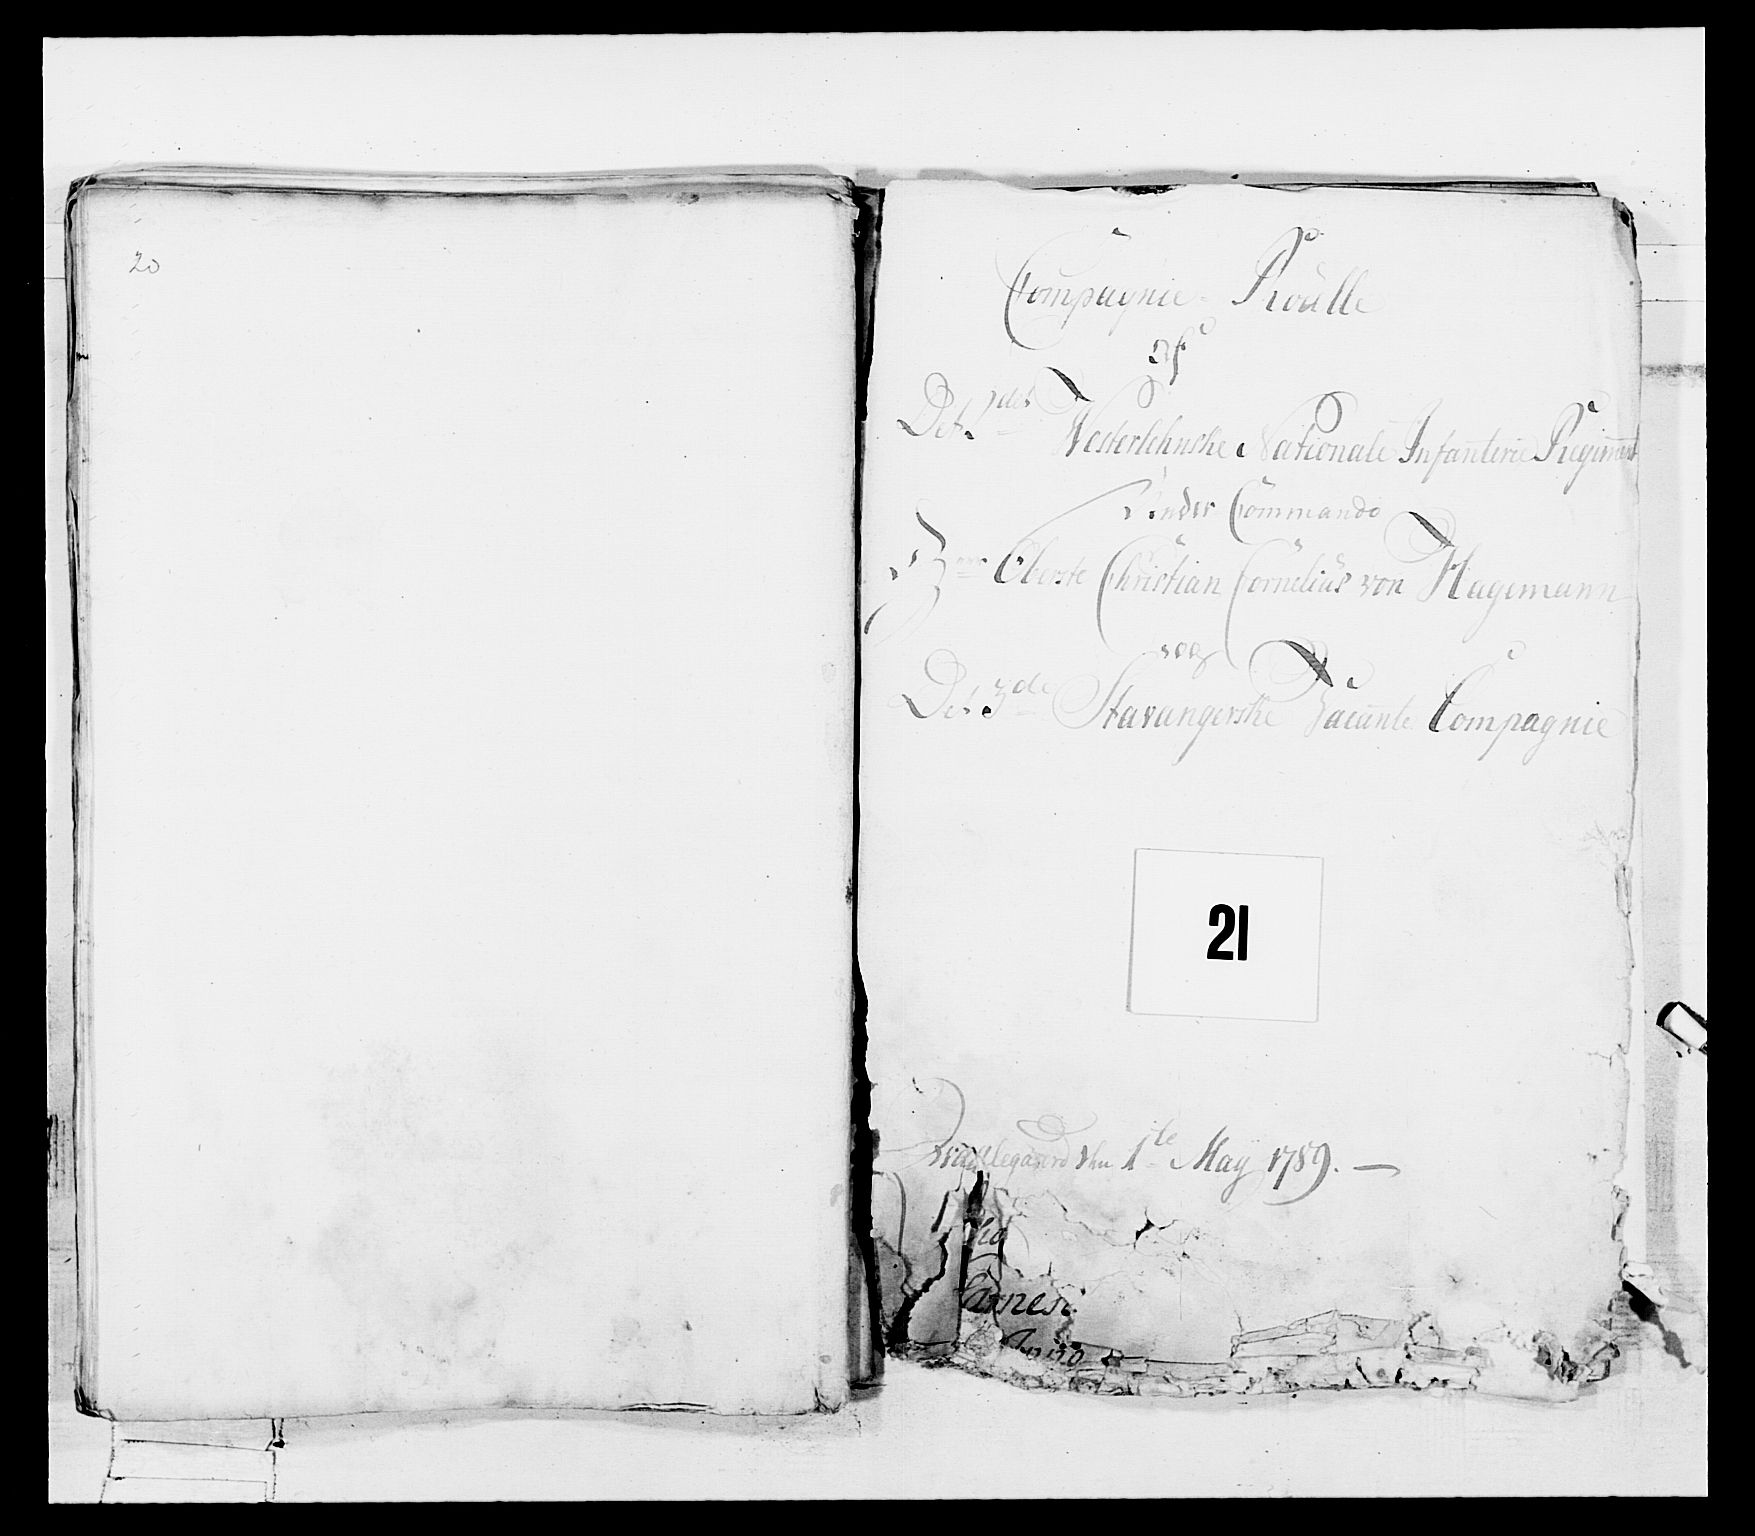 20
Compagnie-Roulle
af
Det 1ste Westerlehnske Nationale Infanterie Regiment
Under Commando
Oberste Christian Cornelius von Hagemann
og
Det 3de Stavangerske Vacante Compagnie
21
den 1te May 1789. —